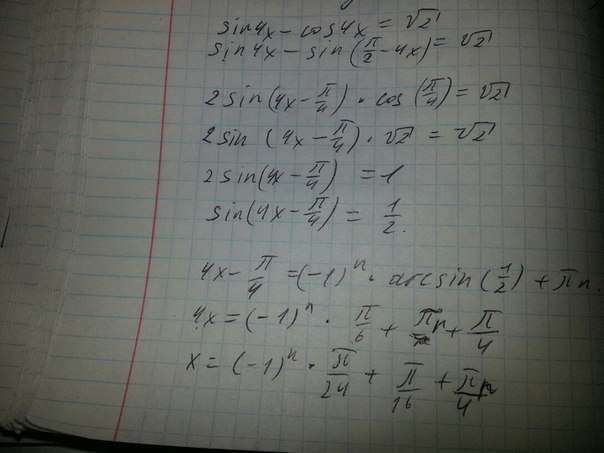 sin4x - cos4x = √2
sin4x - sin(π/2 - 4x) = √2
2sin(4x - π/4) · cos(π/4) = √2
2sin(4x - π/4) · √2 = √2
2sin(4x - π/4) = 1
sin(4x - π/4) = 1/2.
4x - π/4 = (-1)ⁿ · arcsin(1/2) + πn.
4x = (-1)ⁿ · π/6 + πn + π/4
x = (-1)ⁿ · π/24 + π/16 + πn/4